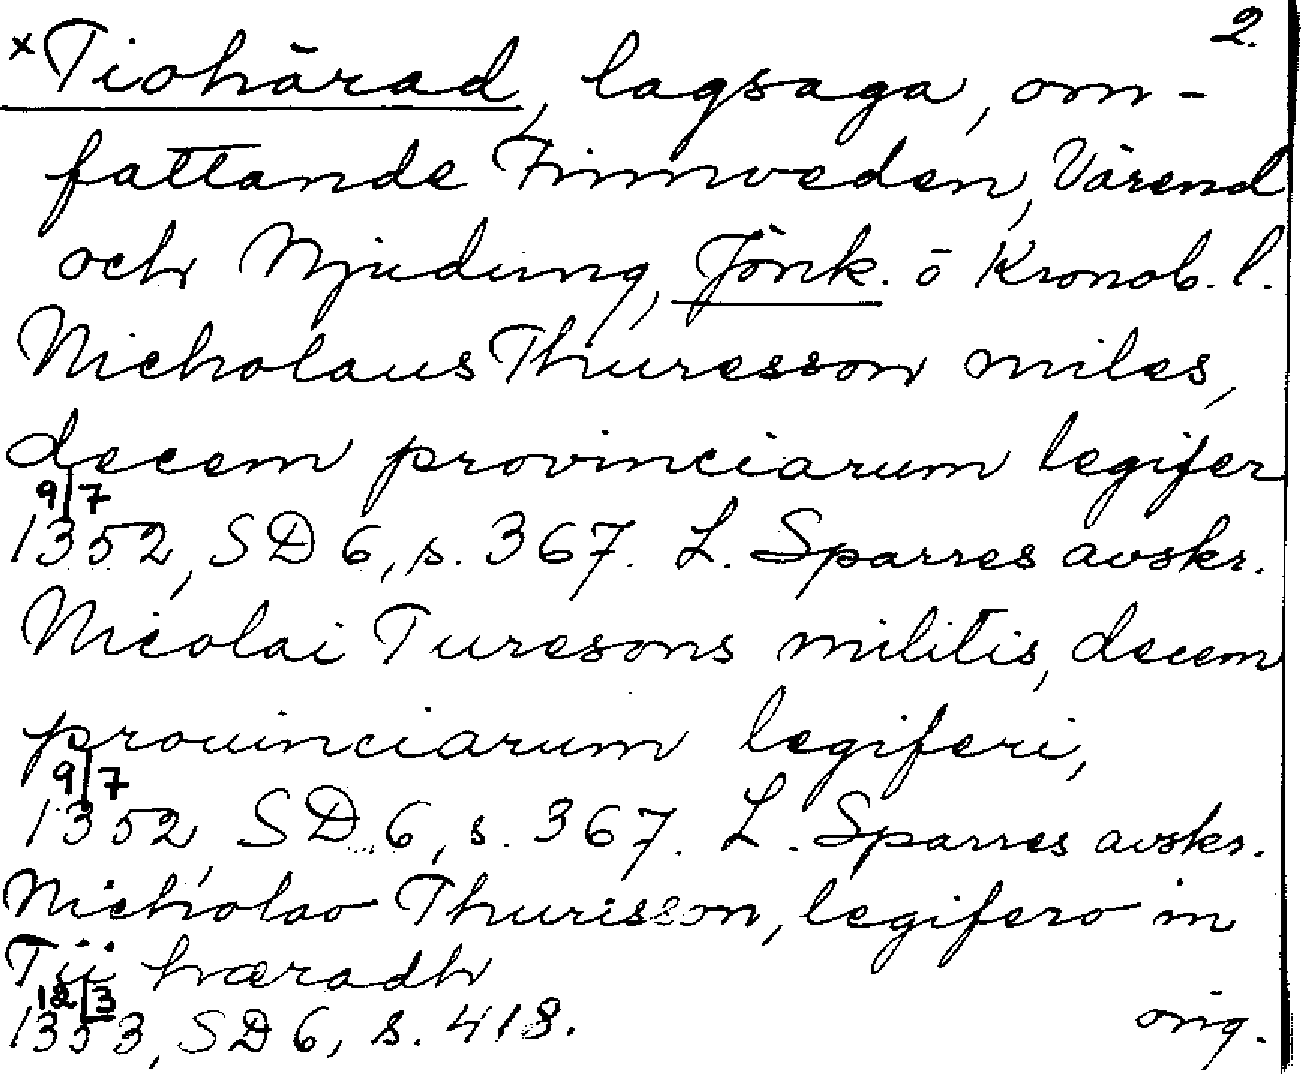 2.
×Tiohärad, lagsaga, om-
fattande Finnveden, Värend
och Njudung, Jönk. o Kronob. l.
Nicholaus Thuresson miles,
decem provinciarum legifer
9/7
1352, SD 6, s. 367. L. Sparres avskr.
Nicolai Turesons militis, decem
prouinciarum legiferi,
9/7
1352, SD 6, s. 367. L. Sparres avskr.
Nicholao Thurisson, legifero in
Tij hæradh
12/3
1353, SD 6, s. 418. orig.